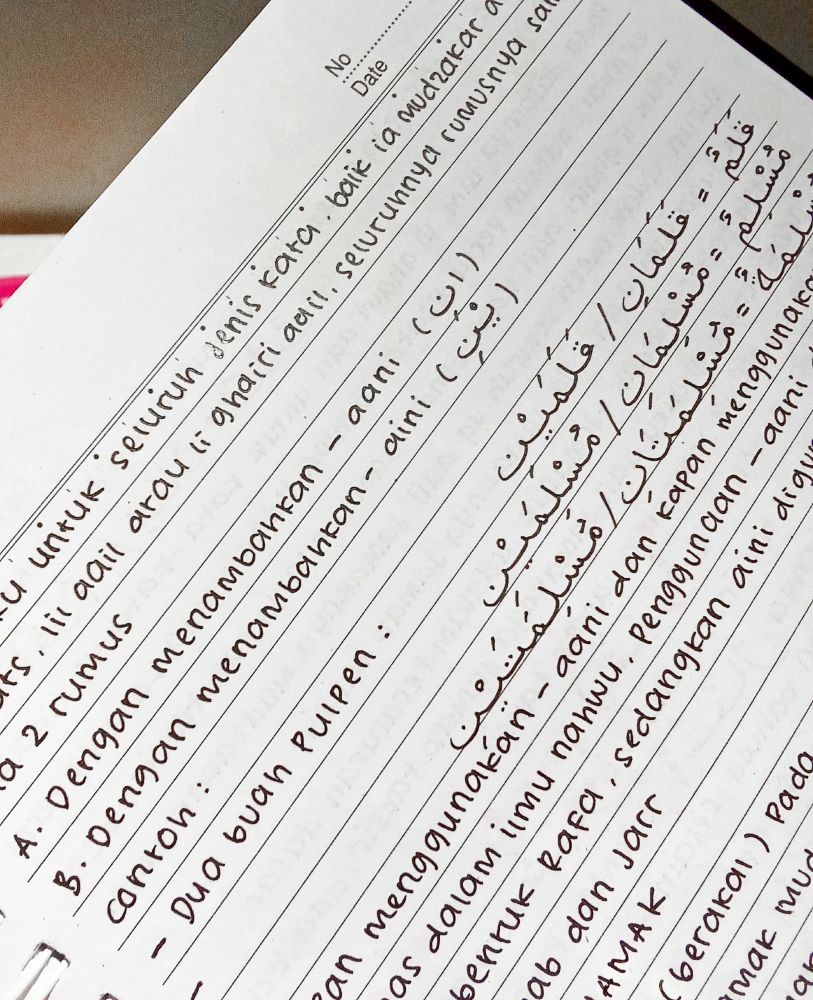 No
Date
untuk seluruh jenis kata, baik ia mudzakar
lil aqil atau li ghairi aqil, seluruhnya rumusnya
2 rumus
A. Dengan menambahkan - aani (انِ)
B. Dengan menambahkan - aini (يْنِ)
Contoh :
- Dua buah Pulpen : قَلَمٌ = قَلَمَانِ / قَلَمَيْنِ
- مُسْلِمٌ = مُسْلِمَانِ / مُسْلِمَيْنِ
مُسْلِمَةٌ = مُسْلِمَتَانِ / مُسْلِمَتَيْنِ
menggunakan - aani dan kapan menggunaka
dalam ilmu nahwu. Penggunaan - aani
bentuk Rafa, sedangkan aini
dan Jarr
AMAK
(berakal) Pada